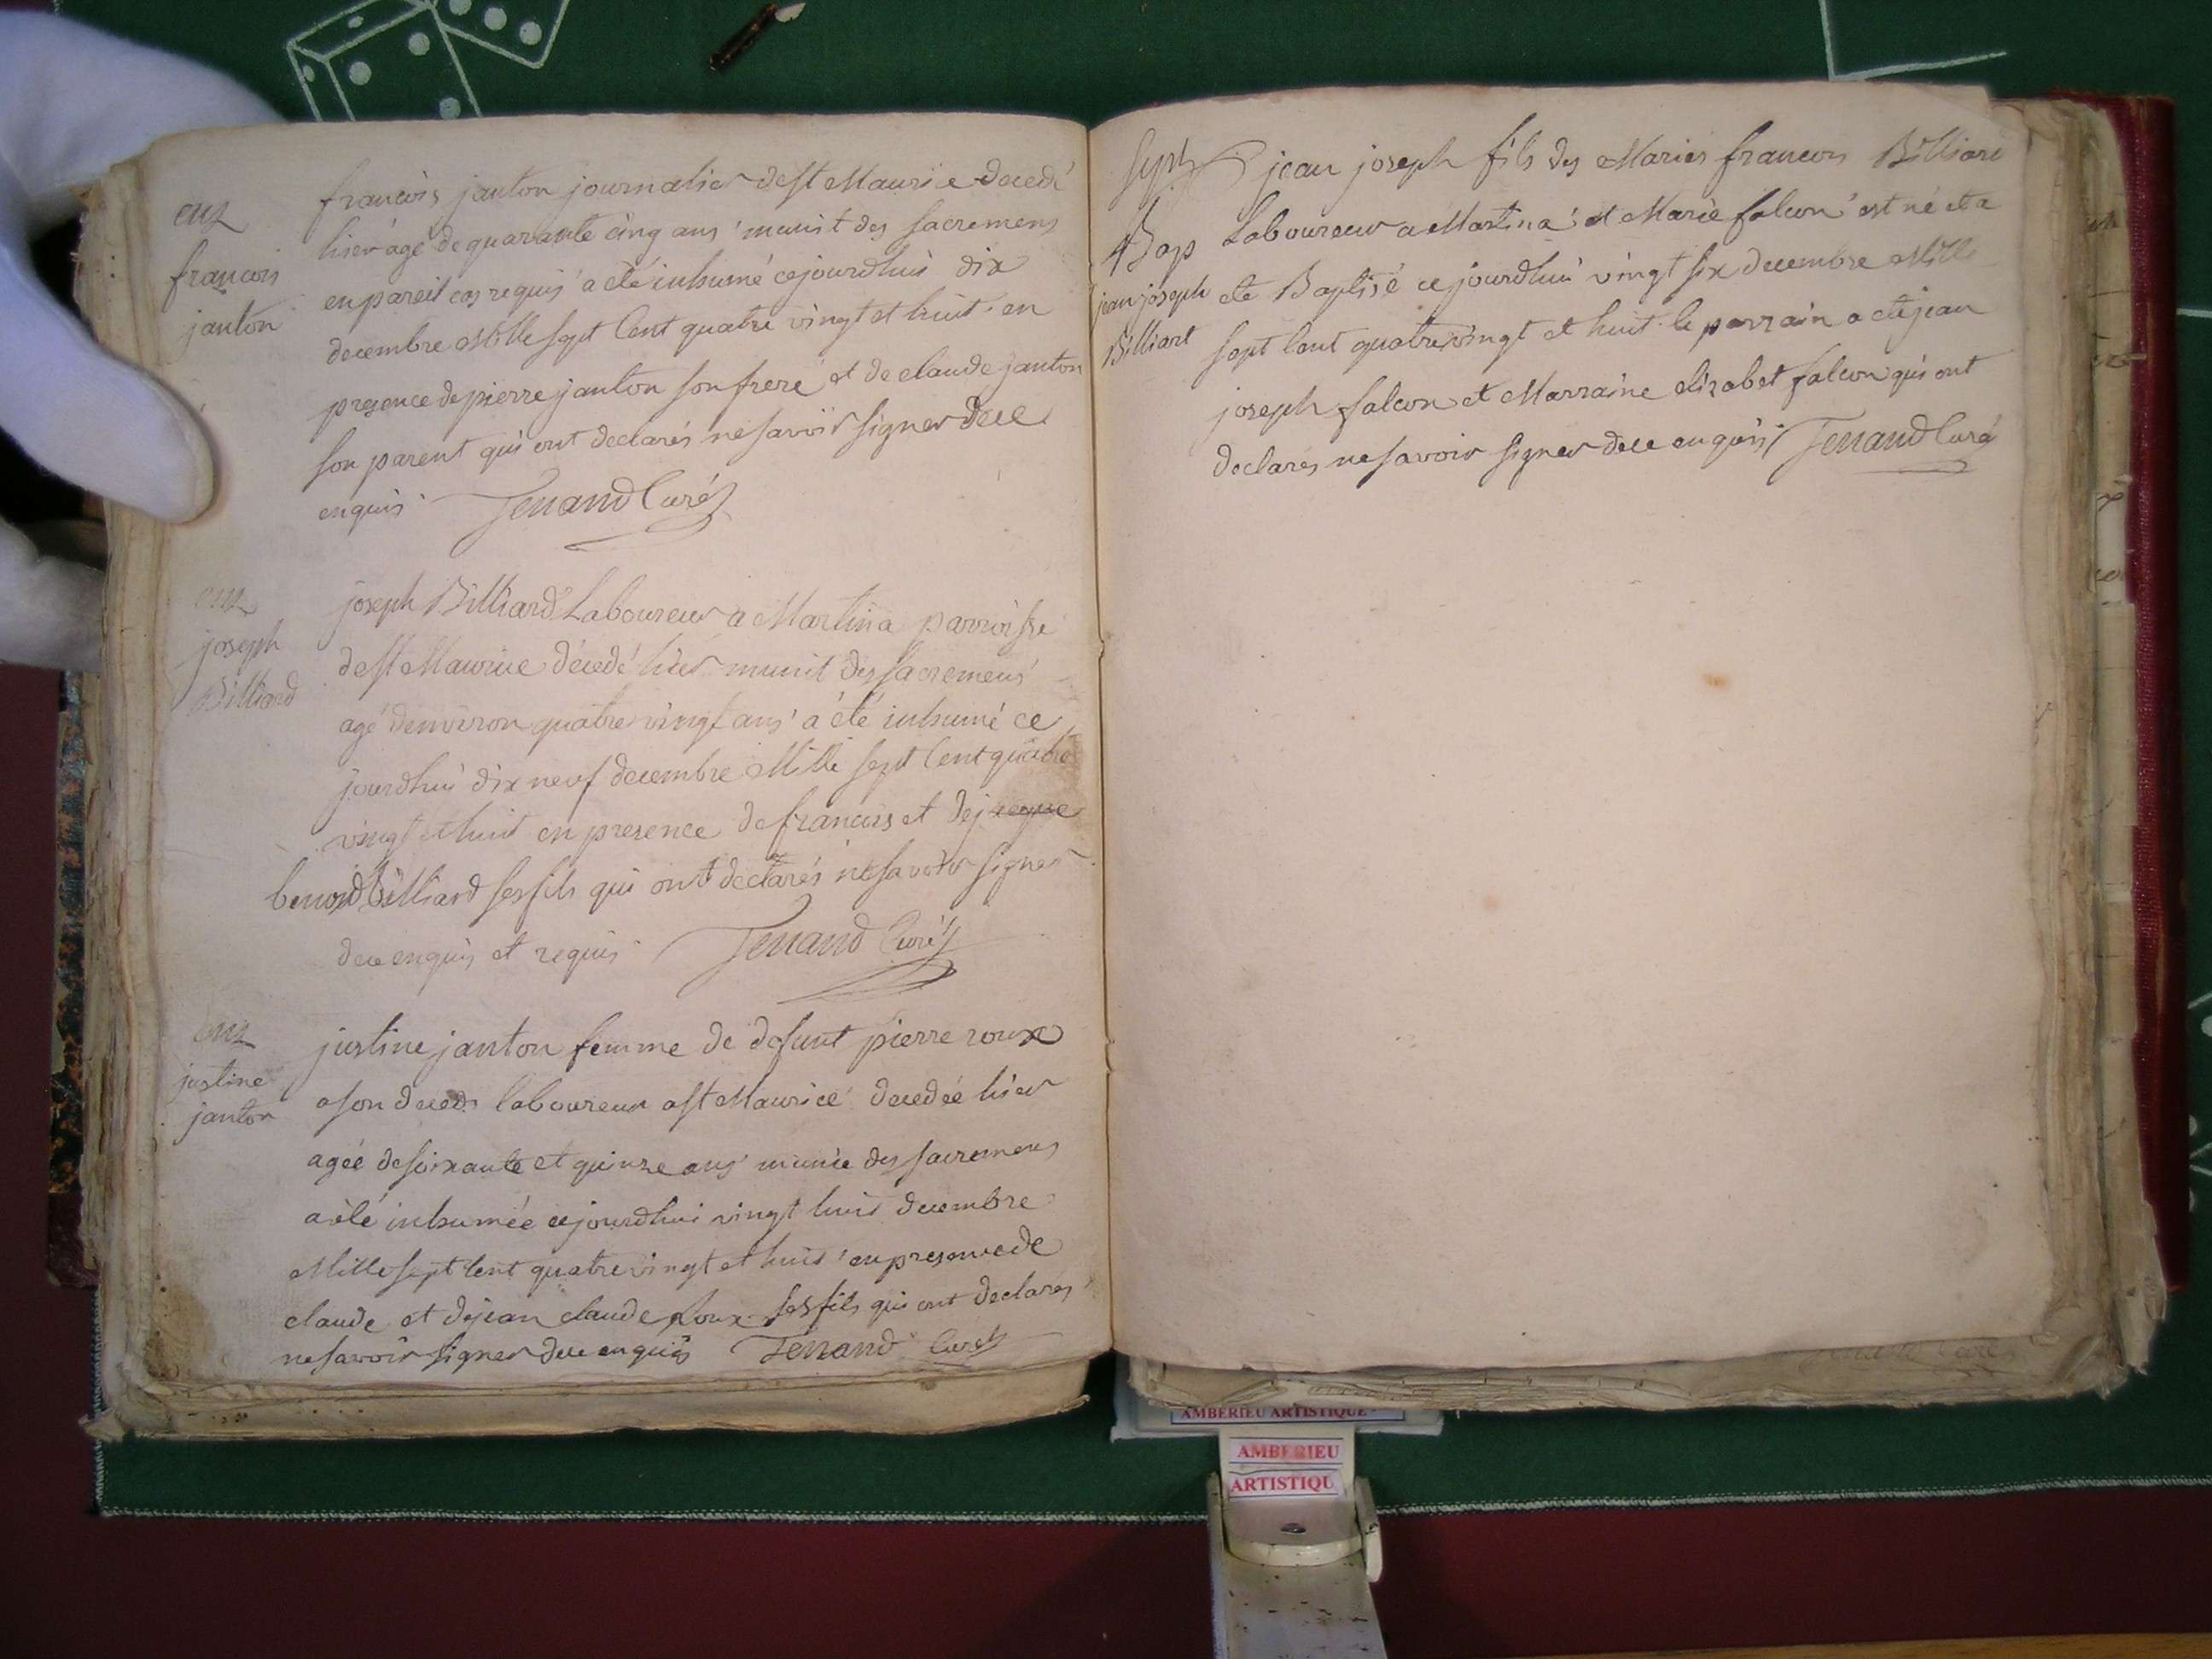 enz
francois
janton
francois janton journalier de st Maurice decedé
hier agé de quarante cinq ans munit des sacremens
en pareil cas requis a été inhumé cejourdhui dix
decembre Mille sept Cent quatre vingt et huit en
presence de pierre janton son frere et de claude janton
son parent qui ont declarés ne savoir signer de ce
enquis Tenand Curé
joseph
Billiard
joseph Billiard Laboureur a Martina parroisse
de st Maurice décedé hier munit des sacremens
agé denviron quatre vingt ans a été inhumé ce
jourdhui dix neuf decembre Mille sept Cent quatre
vingt et huit en presence de francois et de jacque
benoid Billiard ses fils qui ont declarés ne savoir signer
de ce enquis et requis Tenand Curé
enz
justine
janton
justine janton femme de defunt pierre roux
a son deceds laboureur a st Maurice decedée hier
agée de soixante et quinze ans munie des sacremens
a été inhumée cejourdhui vingt huit decembre
Mille sept Cent quatre vingt et huit en presence de
claude et de jean claude Roux ses fils qui ont declarés
ne savoir signer de ce enquis Tenand Curé
jean joseph fils des Mariés francois Billiard
Bap
jean joseph
Billiart
Laboureur a Martina et Marie falcon est né et a
eté Baptisé cejourdhui vingt six decembre Mille
sept Cent quatre vingt et huit le parrain a eté jean
joseph falcon et Marraine elizabet falcon qui ont
declarés ne savoir signer de ce enquis Tenand Curé
AMBERIEU ARTISTIQUE
AMBERIEU
ARTISTIQU